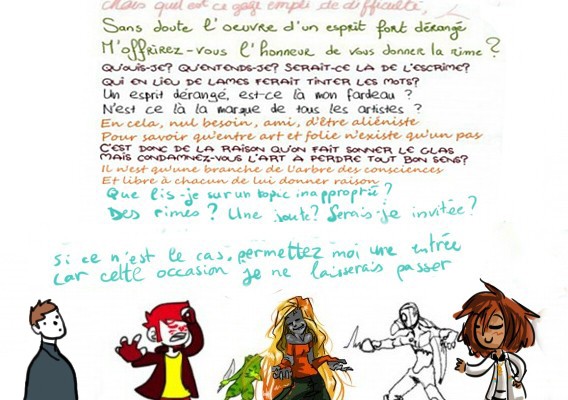 quel est ce gage empli de difficulté,
Sans doute l'oeuvre d'un esprit fort dérangé
M'offrirez-vous l'honneur de vous donner la rime ?
QU'OUIS-JE? QU'ENTENDS-JE? SERAIT-CE LA DE L'ESCRIME?
QUI EN LIEU DE LAMES FERAIT TINTER LES MOTS?
Un esprit dérangé, est-ce là mon fardeau ?
N'est ce là la marque de tous les artistes ?
En cela, nul besoin, ami, d'être aliéniste
Pour savoir qu'entre art et folie n'existe qu'un pas
C'EST DONC DE LA RAISON QU'ON FAIT SONNER LE GLAS
MAIS CONDAMNEZ-VOUS L'ART A PERDRE TOUT BON SENS?
Il n'est qu'une branche de l'arbre des consciences
Et libre à chacun de lui donner raison
Que lis-je sur un topic inapproprié ?
Des rimes ? Une joute ? Serais-je invitée ?
si ce n'est le cas, permettez moi une entrée
car cette occasion je ne laisserais passer